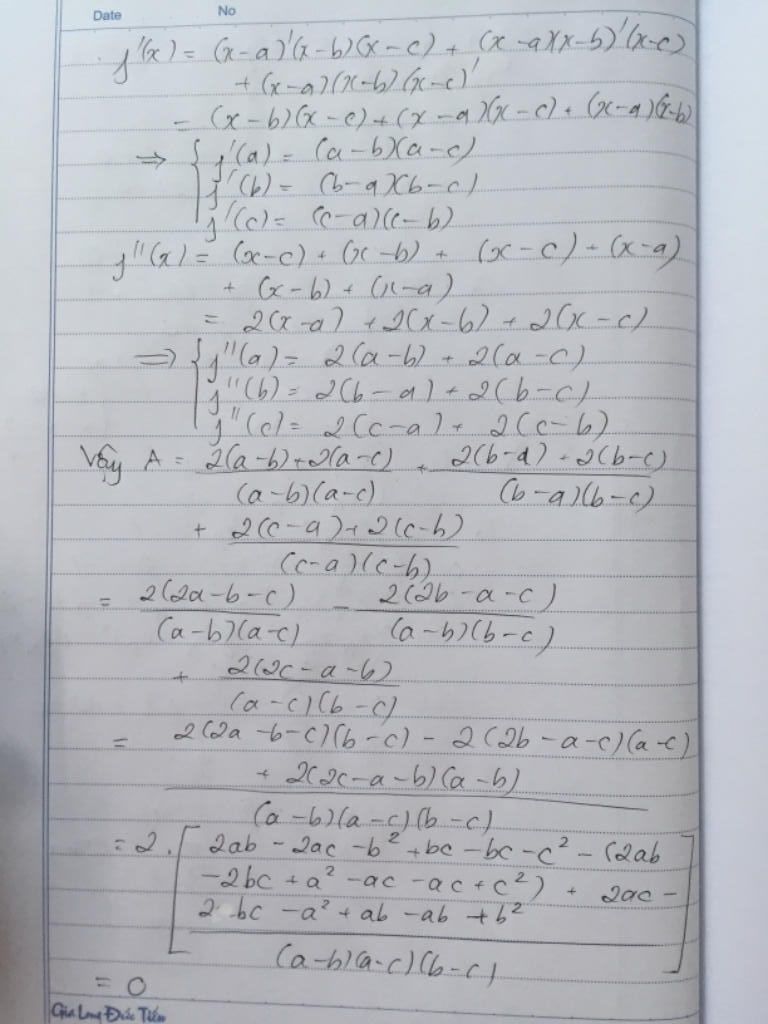 Date No
f'(x) = (x-a)'(x-b)(x-c) + (x-a)(x-b)'(x-c)
+ (x-a)(x-b)(x-c)'
= (x-b)(x-c) + (x-a)(x-c) + (x-a)(x-b)
⇒ { f'(a) = (a-b)(a-c)
f'(b) = (b-a)(b-c)
f'(c) = (c-a)(c-b)
f''(x) = (x-c) + (x-b) + (x-c) + (x-a)
+ (x-b) + (x-a)
= 2(x-a) + 2(x-b) + 2(x-c)
⇒ { f''(a) = 2(a-b) + 2(a-c)
f''(b) = 2(b-a) + 2(b-c)
f''(c) = 2(c-a) + 2(c-b)
Vậy A = 2(a-b)+2(a-c) + 2(b-a)+2(b-c)
(a-b)(a-c) (b-a)(b-c)
+ 2(c-a)+2(c-b)
(c-a)(c-b)
= 2(2a-b-c) - 2(2b-a-c)
(a-b)(a-c) (a-b)(b-c)
+ 2(2c-a-b)
(a-c)(b-c)
= 2(2a-b-c)(b-c) - 2(2b-a-c)(a-c)
+ 2(2c-a-b)(a-b)
(a-b)(a-c)(b-c)
= 2. [ 2ab - 2ac - b² + bc - bc - c² - (2ab
-2bc + a² - ac - ac + c²) + 2ac -
2bc - a² + ab - ab + b² ]
(a-b)(a-c)(b-c)
= 0
Gia Long Đức Tiến